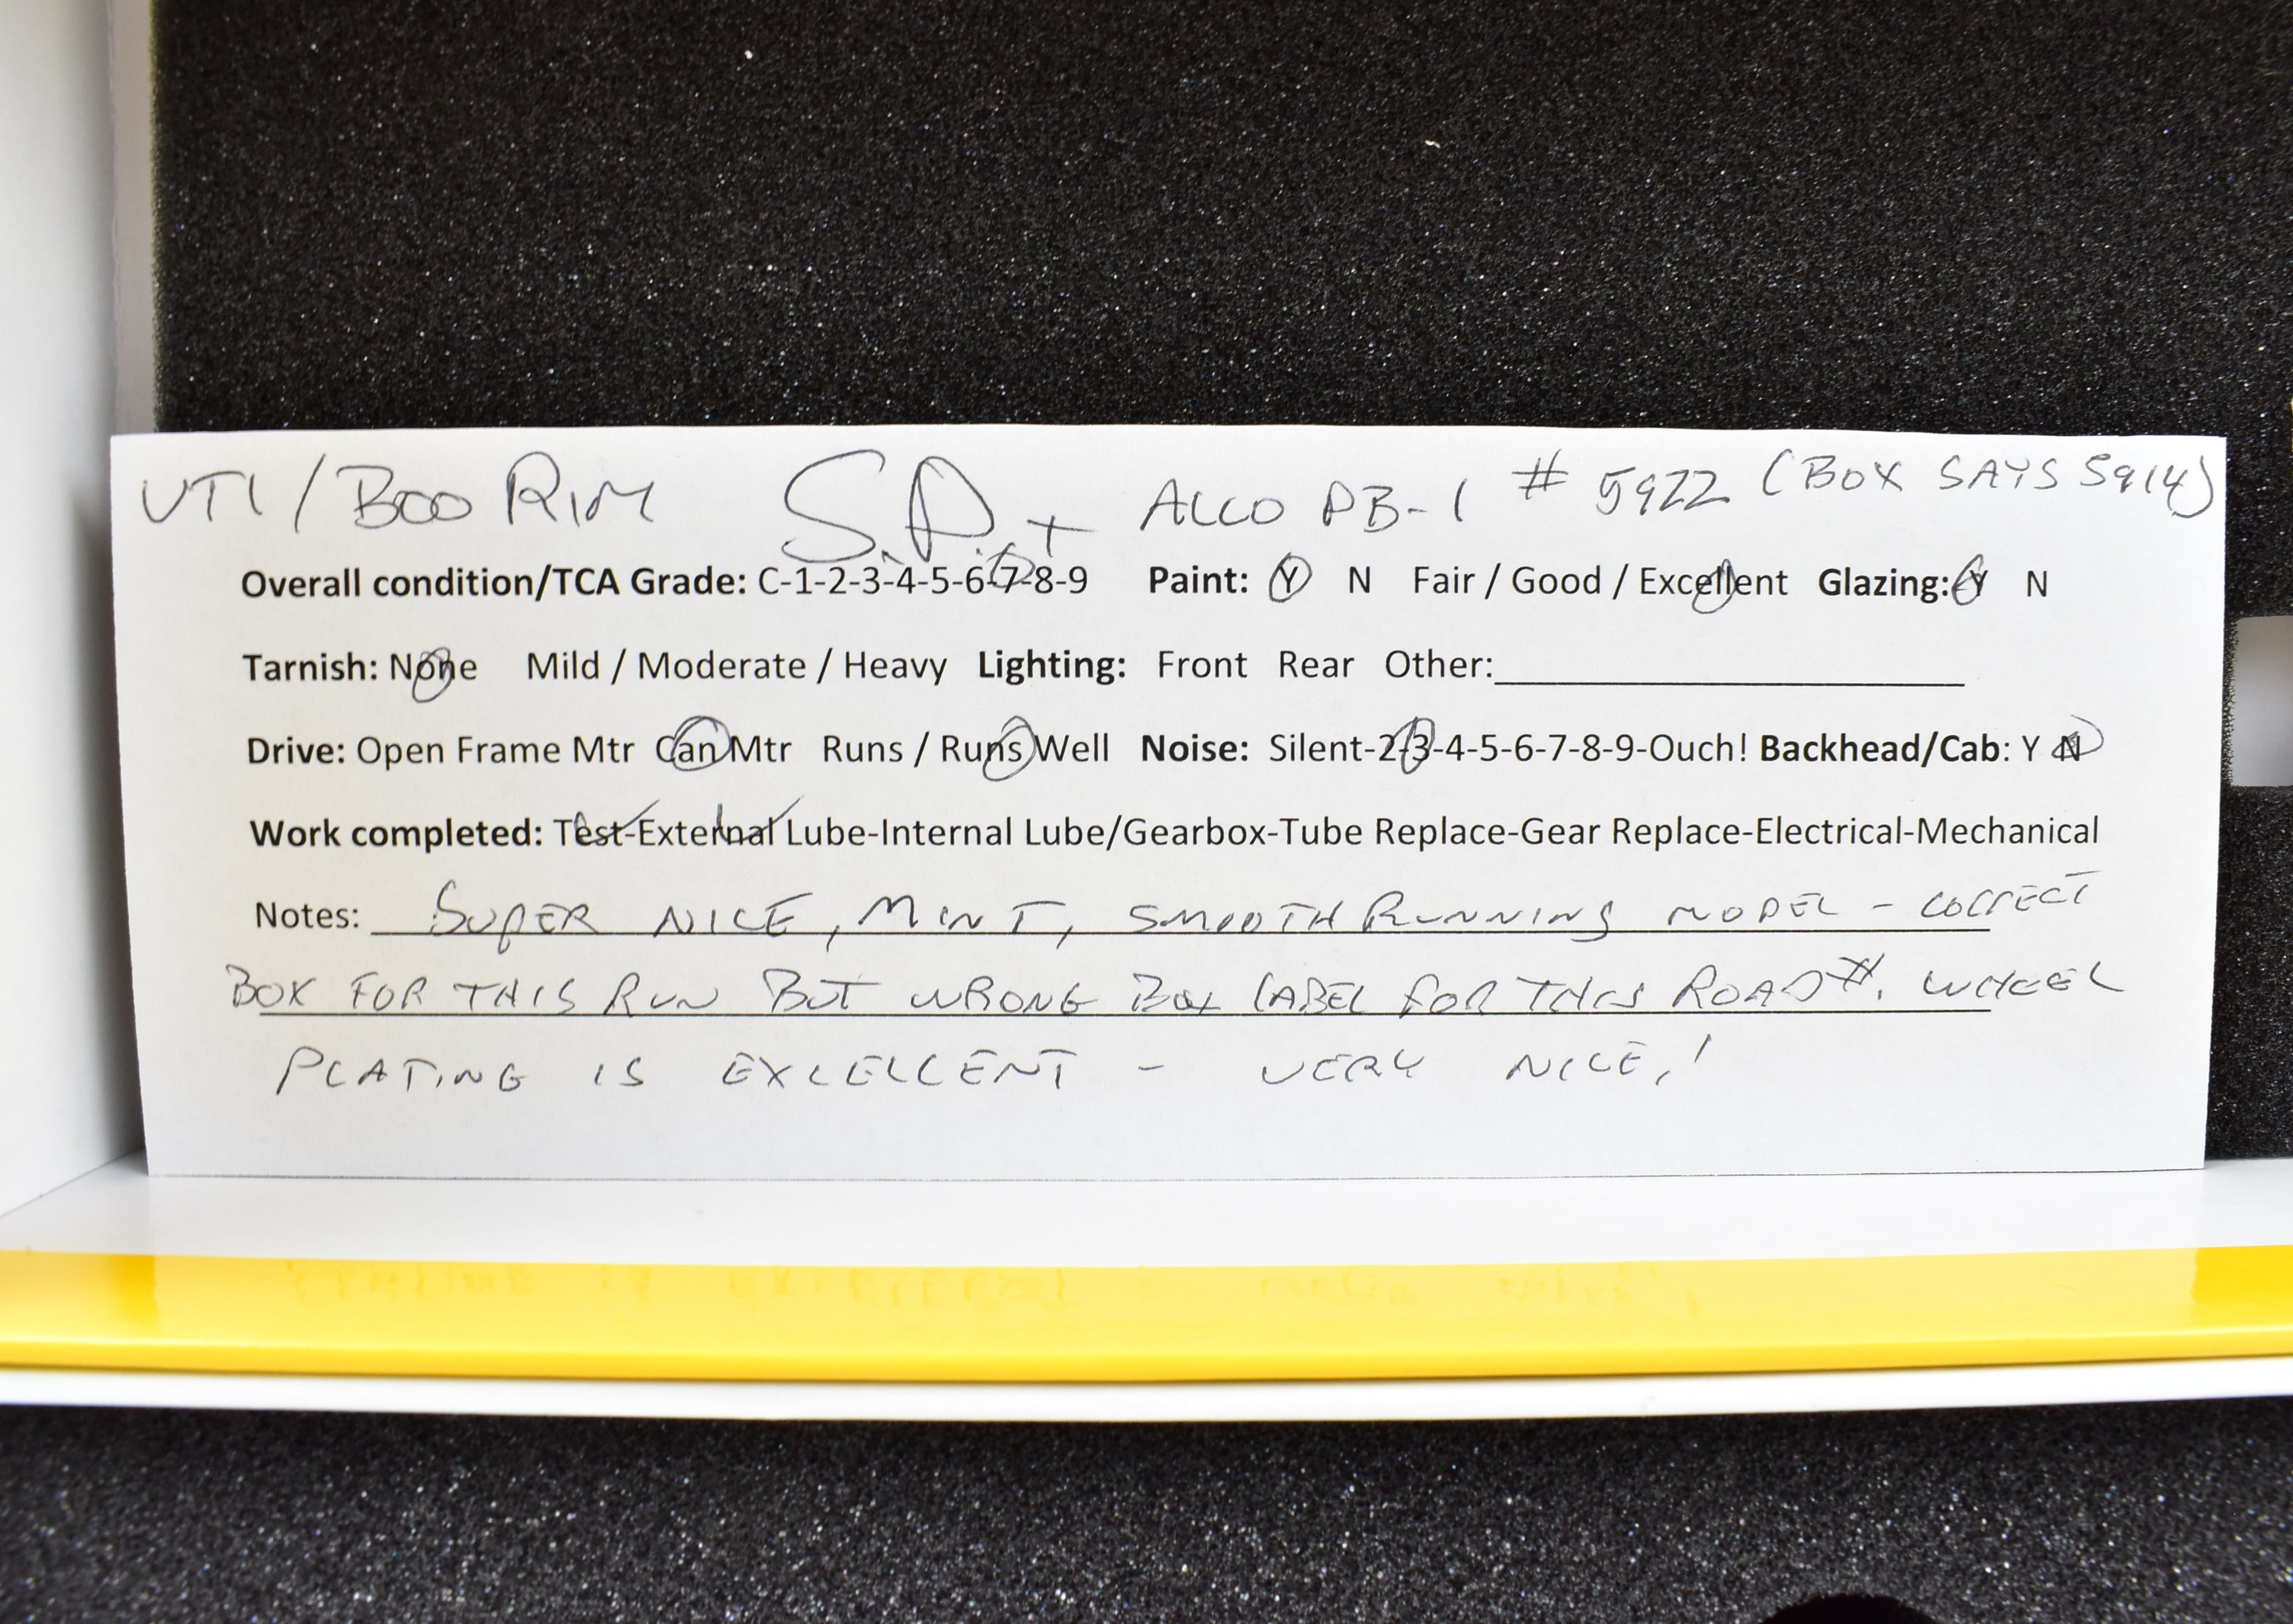 UTI / BOO RIM S.P. + ALCO PB-1 # 5922 (BOX SAYS 5914)
Overall condition/TCA Grade: C-1-2-3-4-5-6-7-8-9 Paint: Y N Fair / Good / Excellent Glazing: Y N
Tarnish: None Mild / Moderate / Heavy Lighting: Front Rear Other:
Drive: Open Frame Mtr Can Mtr Runs / Runs Well Noise: Silent-2-3-4-5-6-7-8-9-Ouch! Backhead/Cab: Y N
Work completed: Test-External Lube-Internal Lube/Gearbox-Tube Replace-Gear Replace-Electrical-Mechanical
Notes: SUPER NICE, MINT, SMOOTH RUNNING MODEL - CORRECT
BOX FOR THIS RUN BUT WRONG BOX LABEL FOR THIS ROAD #. WHEEL
PLATING IS EXCELLENT - VERY NICE!